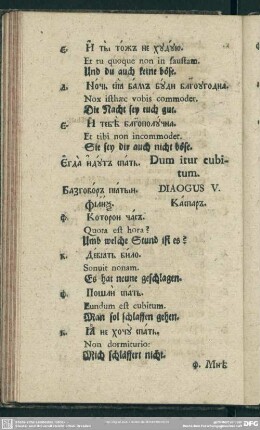 Е. И ты тожъ не худую.
Et tu quoque non in faustam.
Und du auch keine böse.
Д. Ночь сїѧ вамъ буди благоугодна.
Nox isthæc vobis commoder.
Die Nacht sey euch gut.
Е. И тебѣ благополучна.
Et tibi non incommoder.
Sie sey dir auch nicht böse.
Егда идутъ спать. Dum itur cubitum.
Разговоръ пѧтый. DIAOGUS V.
Каспаръ.
Ф. Которои часъ.
Quora est hora?
Umb welche Stund ist es?
К. Девѧть било.
Sonuit nonam.
Es hat neune geschlagen.
Ф. Пошли спать.
Eundum est cubitum.
Man sol schlaffen gehen.
К. Я не хочу спать.
Non dormicurio:
Mich schläffert nicht.
Ф. Мнѣ
DFG